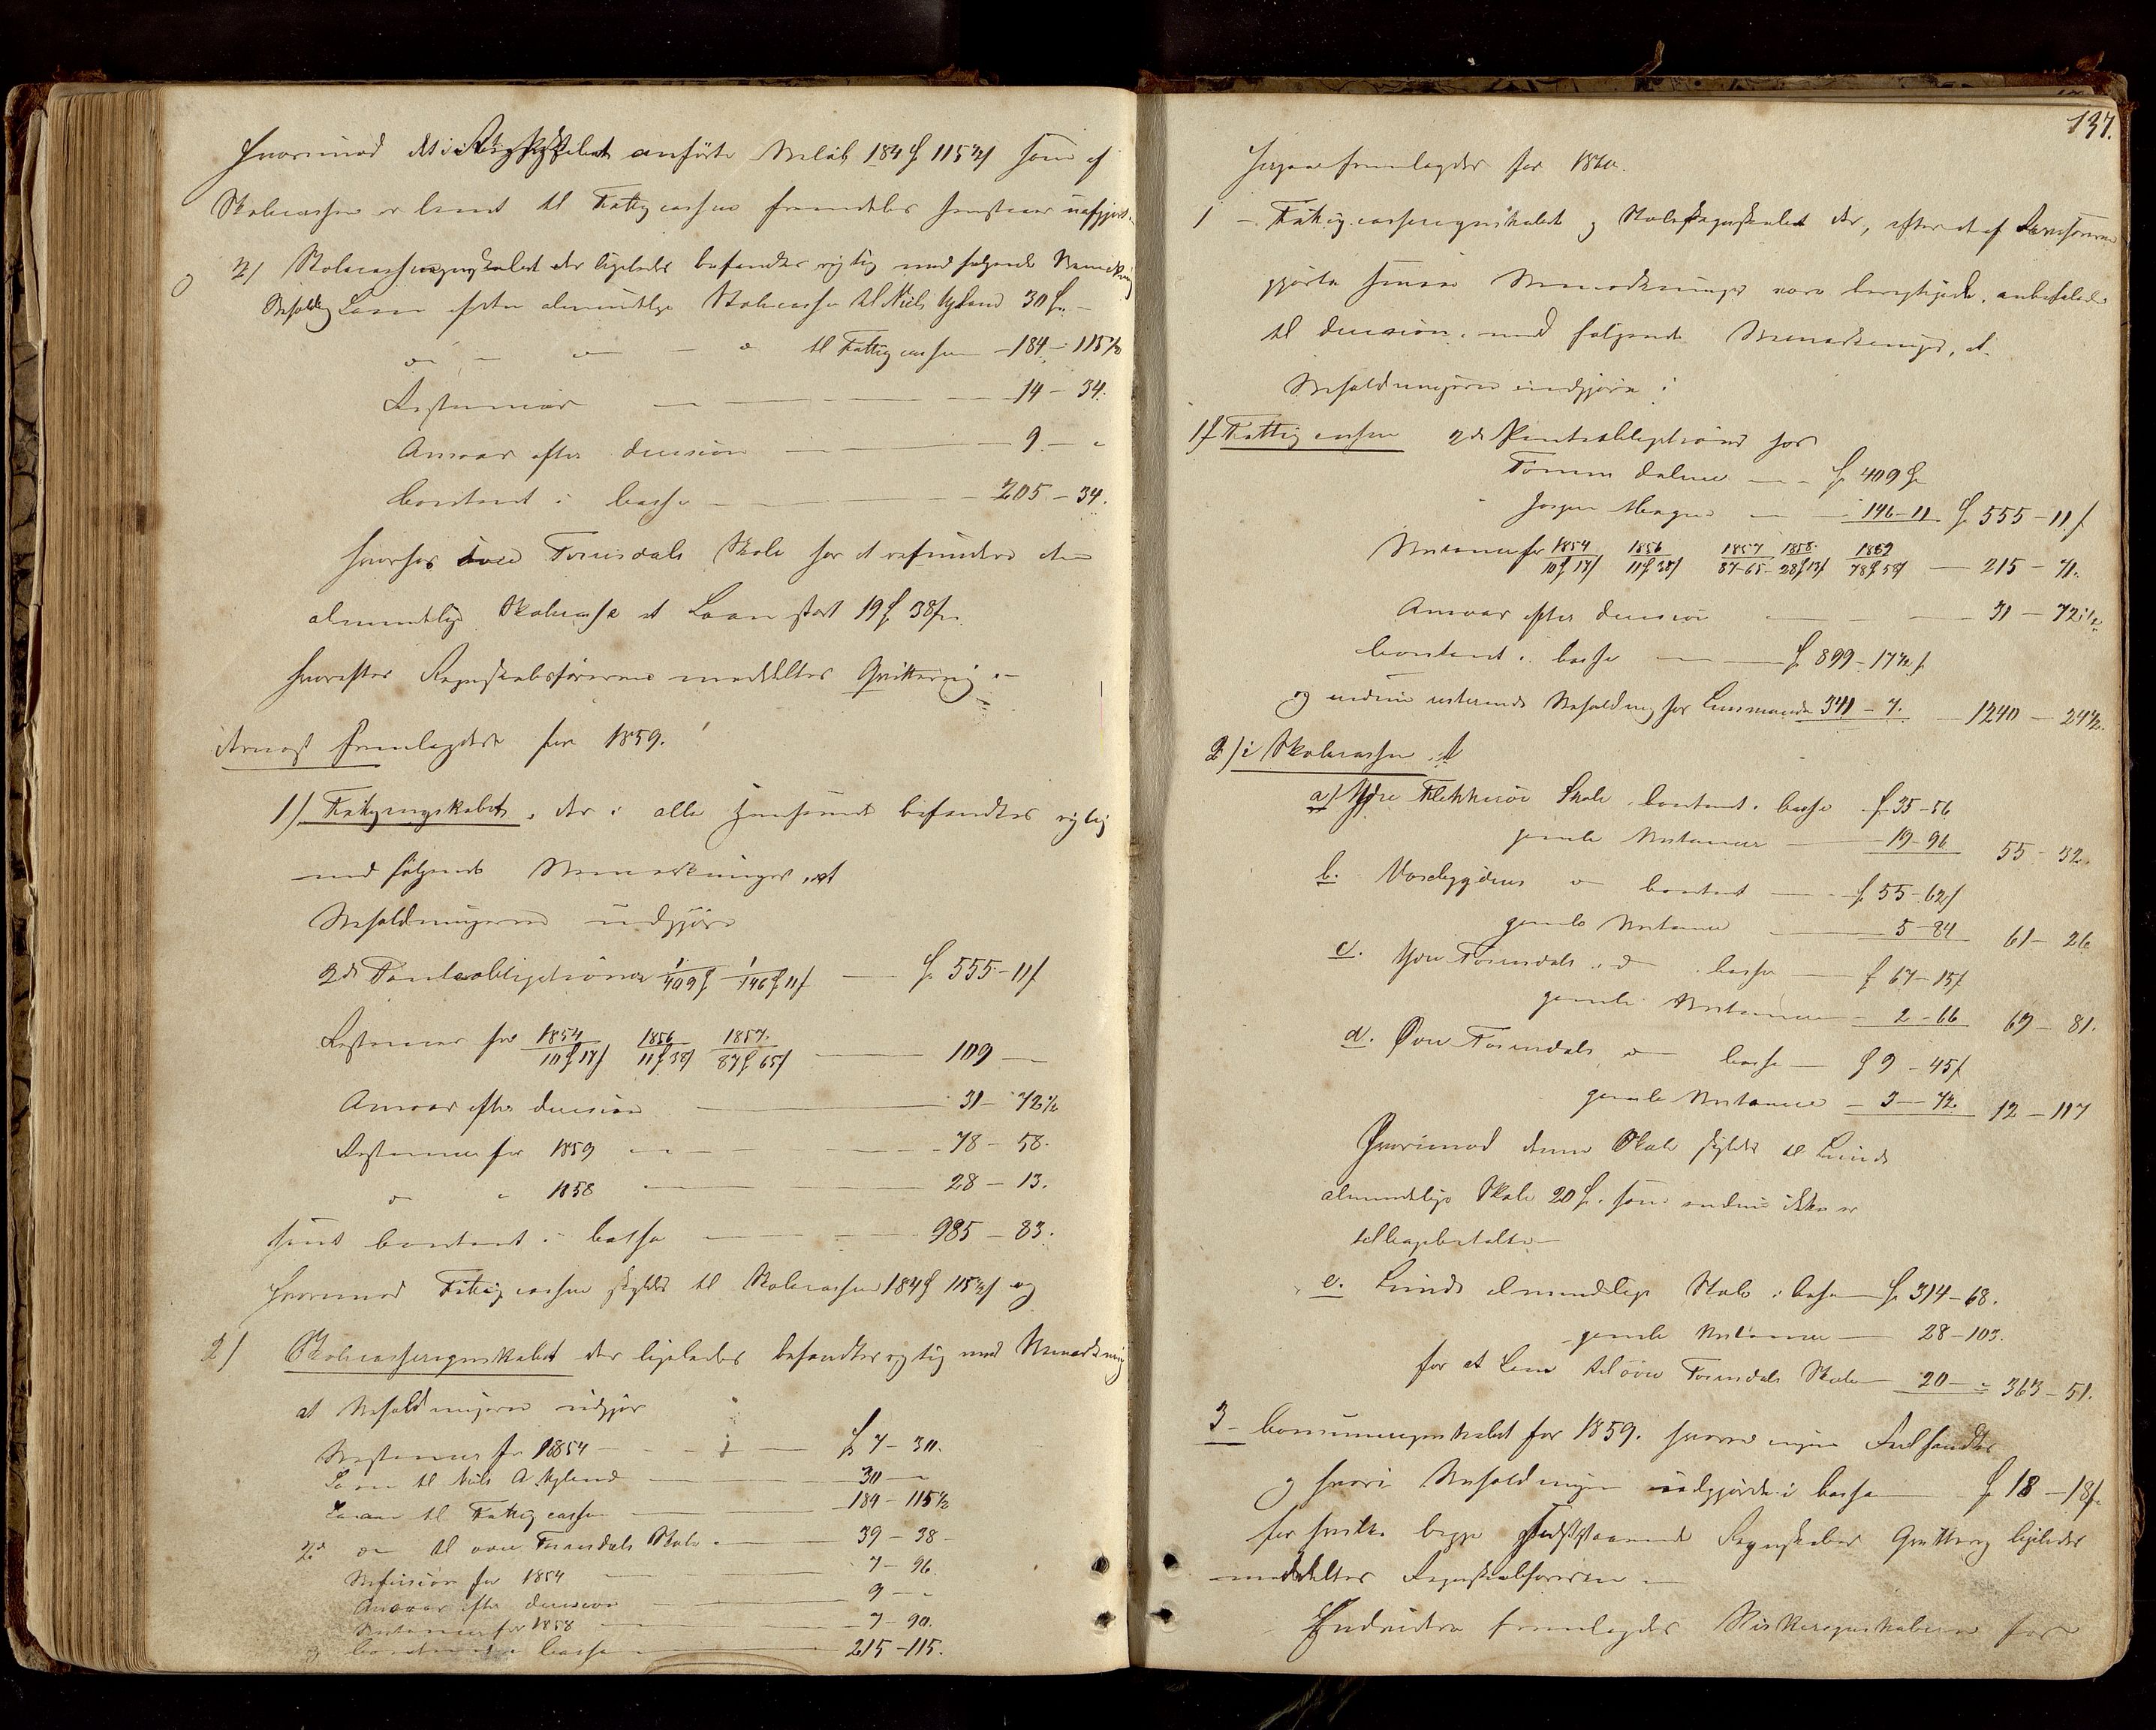 hvorimod det i Regnskabet anførte Beløb 184 ₰ 115½ f som af
Skolecassen er laant til Fattigcassen fremdeles henstaaer uafgjort.
2/ Skolecasseregnskabet der ligeledes befandtes rigtig med følgende Bemærkning
Behold Laan efter almindelige Skolecasse til Niels Nylund 30 ₰ -
do - do - do til Fattigcassen - 184 - 115½
Restancer - 14 - 34.
Ansvar efter decision - 9 - "
Contant i Casse - 205 - 34.
hvorhos øvre Torrisdals Skole har at refundere den
almindelige Skolecasse et Laan stort 19 ₰ 38 f.
hvorefter Regnskabsførerne meddeltes Qvittering.-
dernæst fremlagdes for 1859.
1/ Fattigregnskabet, der i alle Henseender befandtes rigtig
med følgende Bemærkninger, at
Beholdningerne udgjøre
2de Panteobligationer 1/409 ₰ 1/146 ₰ 11 f - ₰ 555 - 11 f
Restancer for 1854 1856 1857.
10 ₰ 17 f 11 ₰ 38 f 87 ₰ 65 f - 109 -
Ansvar efter decision - 31 - 72½
Restancer for 1859 - 78 - 58.
do " 1858 - 28 - 13.
samt contant i Cassa - 985 - 83.
hvorimod Fattigcassen skylder til Skolecassen 184 ₰ 115½ f og
2/ Skolecasseregnskabet der ligeledes befandtes rigtig med Bemærkning
at Beholdningerne udgjør
Restancer for 1854 - ₰ 7 - 30.
Laan til Niels A. Nylund - 30 -
Laan til Fattigcassen - 184 - 115½
2d do til øvre Torrisdals Skole - 39 - 38 -
for 1854 - 7 - 96.
Ansvar efter decision - 9 - "
Restancer for 1858 - 7 - 90.
og contant i Cassa - 215 - 115.
137.
fremlagdes for 1860.
1 - Fattigcasseregnskabet og Skoleregnskabet der, efterat af Revisorerne
gjorte Bemærkninger vare berigtigede, anbefaledes
til decision med følgende Bemærkninger, at
Beholdningerne udgjøre i
1/ Fattigcassen 2de Panteobligationer for
₰ 409 ₰
146 - 11 ₰ 555 - 11 f
Restancer for 1854 1856 1857 1858 1859
10 ₰ 17 f 11 ₰ 38 f 87 - 65 - 28 ₰ 13 f 78 ₰ 58 f - 215 - 71.
Ansvar efter decision - 31 - 72½
Contant i Casse - ₰ 899 - 17½ f
og endnu resterende Beholdning hos Lensmand 341 - 7. - 1240 - 24½.
2/ i Skolecassen, til
a/ Ydre Flekkerøe Skole, contant i Casse ₰ 35 - 56
gamle Restancer - 19 - 96 55 - 32.
b. Vosebygdens do contant - ₰ 55 - 62 f
gamle Restancer - 5 - 84 61 - 26
c. Ydre Torrisdals do Cassa - ₰ 67 - 15 f
gamle Restancer - 2 - 66 69 - 81.
d. Øvre Torrisdals do Casse - ₰ 9 - 45 f
gamle Restancer - 3 - 72 12 - 117
Hvorimod denne Skole skylder til Lunds
almindelige Skole 20 ₰. som endnu ikke er
tilbagebetalte -
e. Lunds almindelige Skole i Casse ₰ 314 - 68.
gamle Restancer - 28 - 103.
for et Laan til øvre Torrisdals Skole - 20 - " 363 - 51.
3 - Communeregnskabet for 1859. hvorved ingen
og hvori Beholdningen udgjorde i Cassa - ₰ 18 - 18 f
for hvilke begge Regnskaber Qvittering ligeledes
meddeltes Regnskabsføreren -
Endvidere fremlagdes Kirkeregnskaberne for